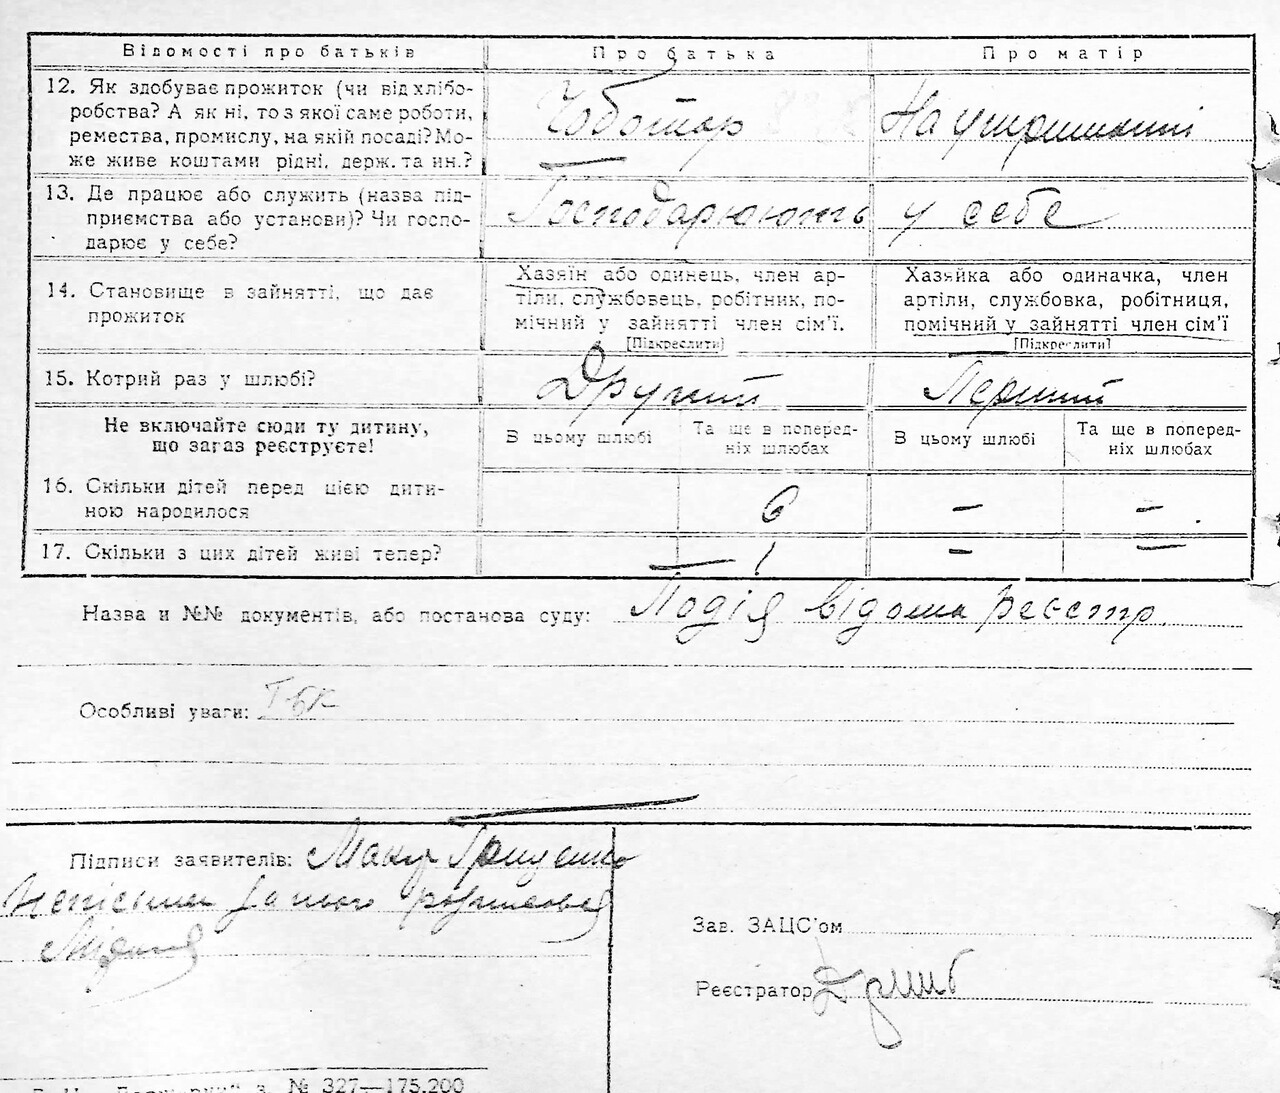 Відомості про батьків Про батька Про матір
12. Як здобуває прожиток (чи від хлібо-
робства? А як ні, то з якої саме роботи,
ремества, промислу, на якій посаді? Мо-
же живе коштами рідні, держ. та ин.?
Чоботар На утриманні
13. Де працює або служить (назва під-
приємства або установи)? Чи госпо-
дарює у себе?
Господарюють у себе
14. Становище в зайнятті, що дає
прожиток
Хазяїн або одинець, член ар-
тіли, службовець, робітник, по-
мічний у зайнятті член сім'ї.
[Підкреслити]
Хазяйка або одиначка, член
артіли, службовка, робітниця,
помічний у зайнятті член сім'ї
[Підкреслити]
15. Котрий раз у шлюбі? Другий Перший
Не включайте сюди ту дитину,
що загаз реєструєте!
В цьому шлюбі
Та ще в поперед-
ніх шлюбах
В цьому шлюбі
Та ще в поперед-
ніх шлюбах
16. Скільки дітей перед цією дити-
ною народилося
6 – –
17. Скільки з цих дітей живі тепер? – 1 – –
Назва и №№ документів, або постанова суду: Подія відома реєстр.
Особливі уваги:
Підписи заявителів: Грищенко
Зав. ЗАЦС'ом
Реєстратор
№ 327—175.200